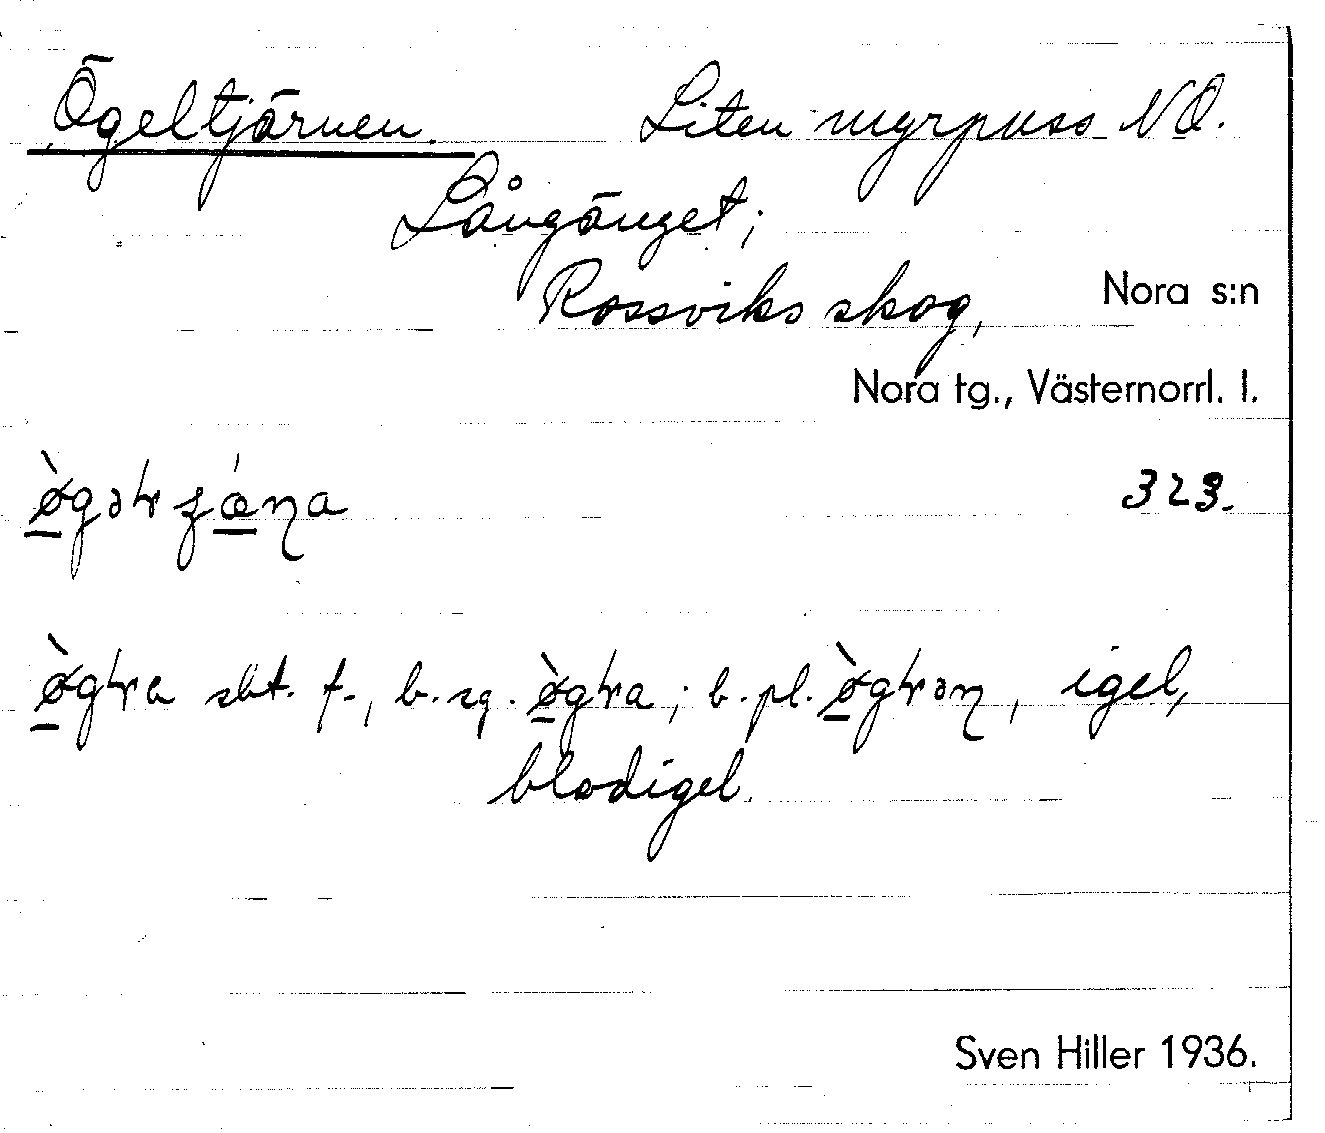 Ögeltjärnen. Liten myrpuss NÖ.
Långänget;
Rossviks skog, Nora s:n
Nora tg., Västernorrl. l.
323.
sbt. f., b. sg. ; b. pl. , igel,
blodigel.
Sven Hiller 1936.